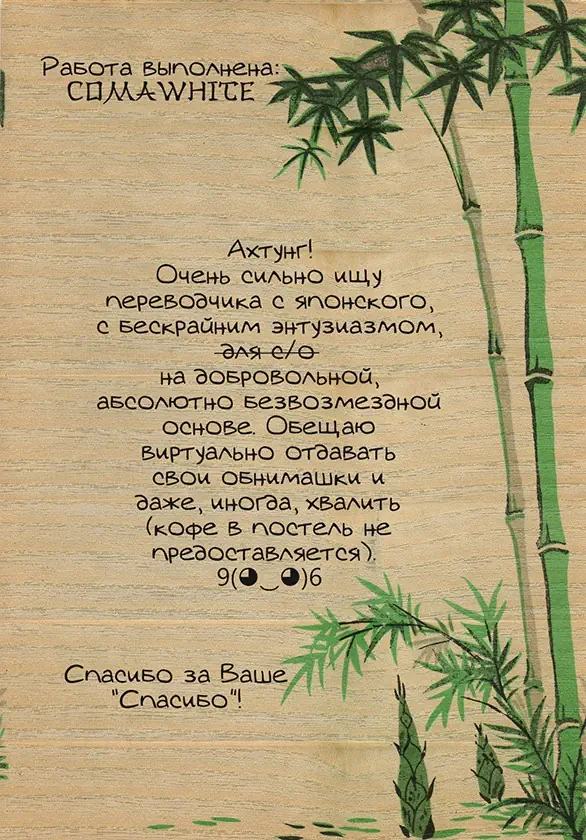 Работа выполнена:
COMAWHITE
Ахтунг!
Очень сильно ищу
переводчика с японского,
с бескрайним энтузиазмом,
для с/о
на добровольной,
абсолютно безвозмездной
основе. Обещаю
виртуально отдавать
свои обнимашки и
даже, иногда, хвалить
(кофе в постель не
предоставляется).
9(◕‿◕)6
Спасибо за Ваше
"Спасибо"!